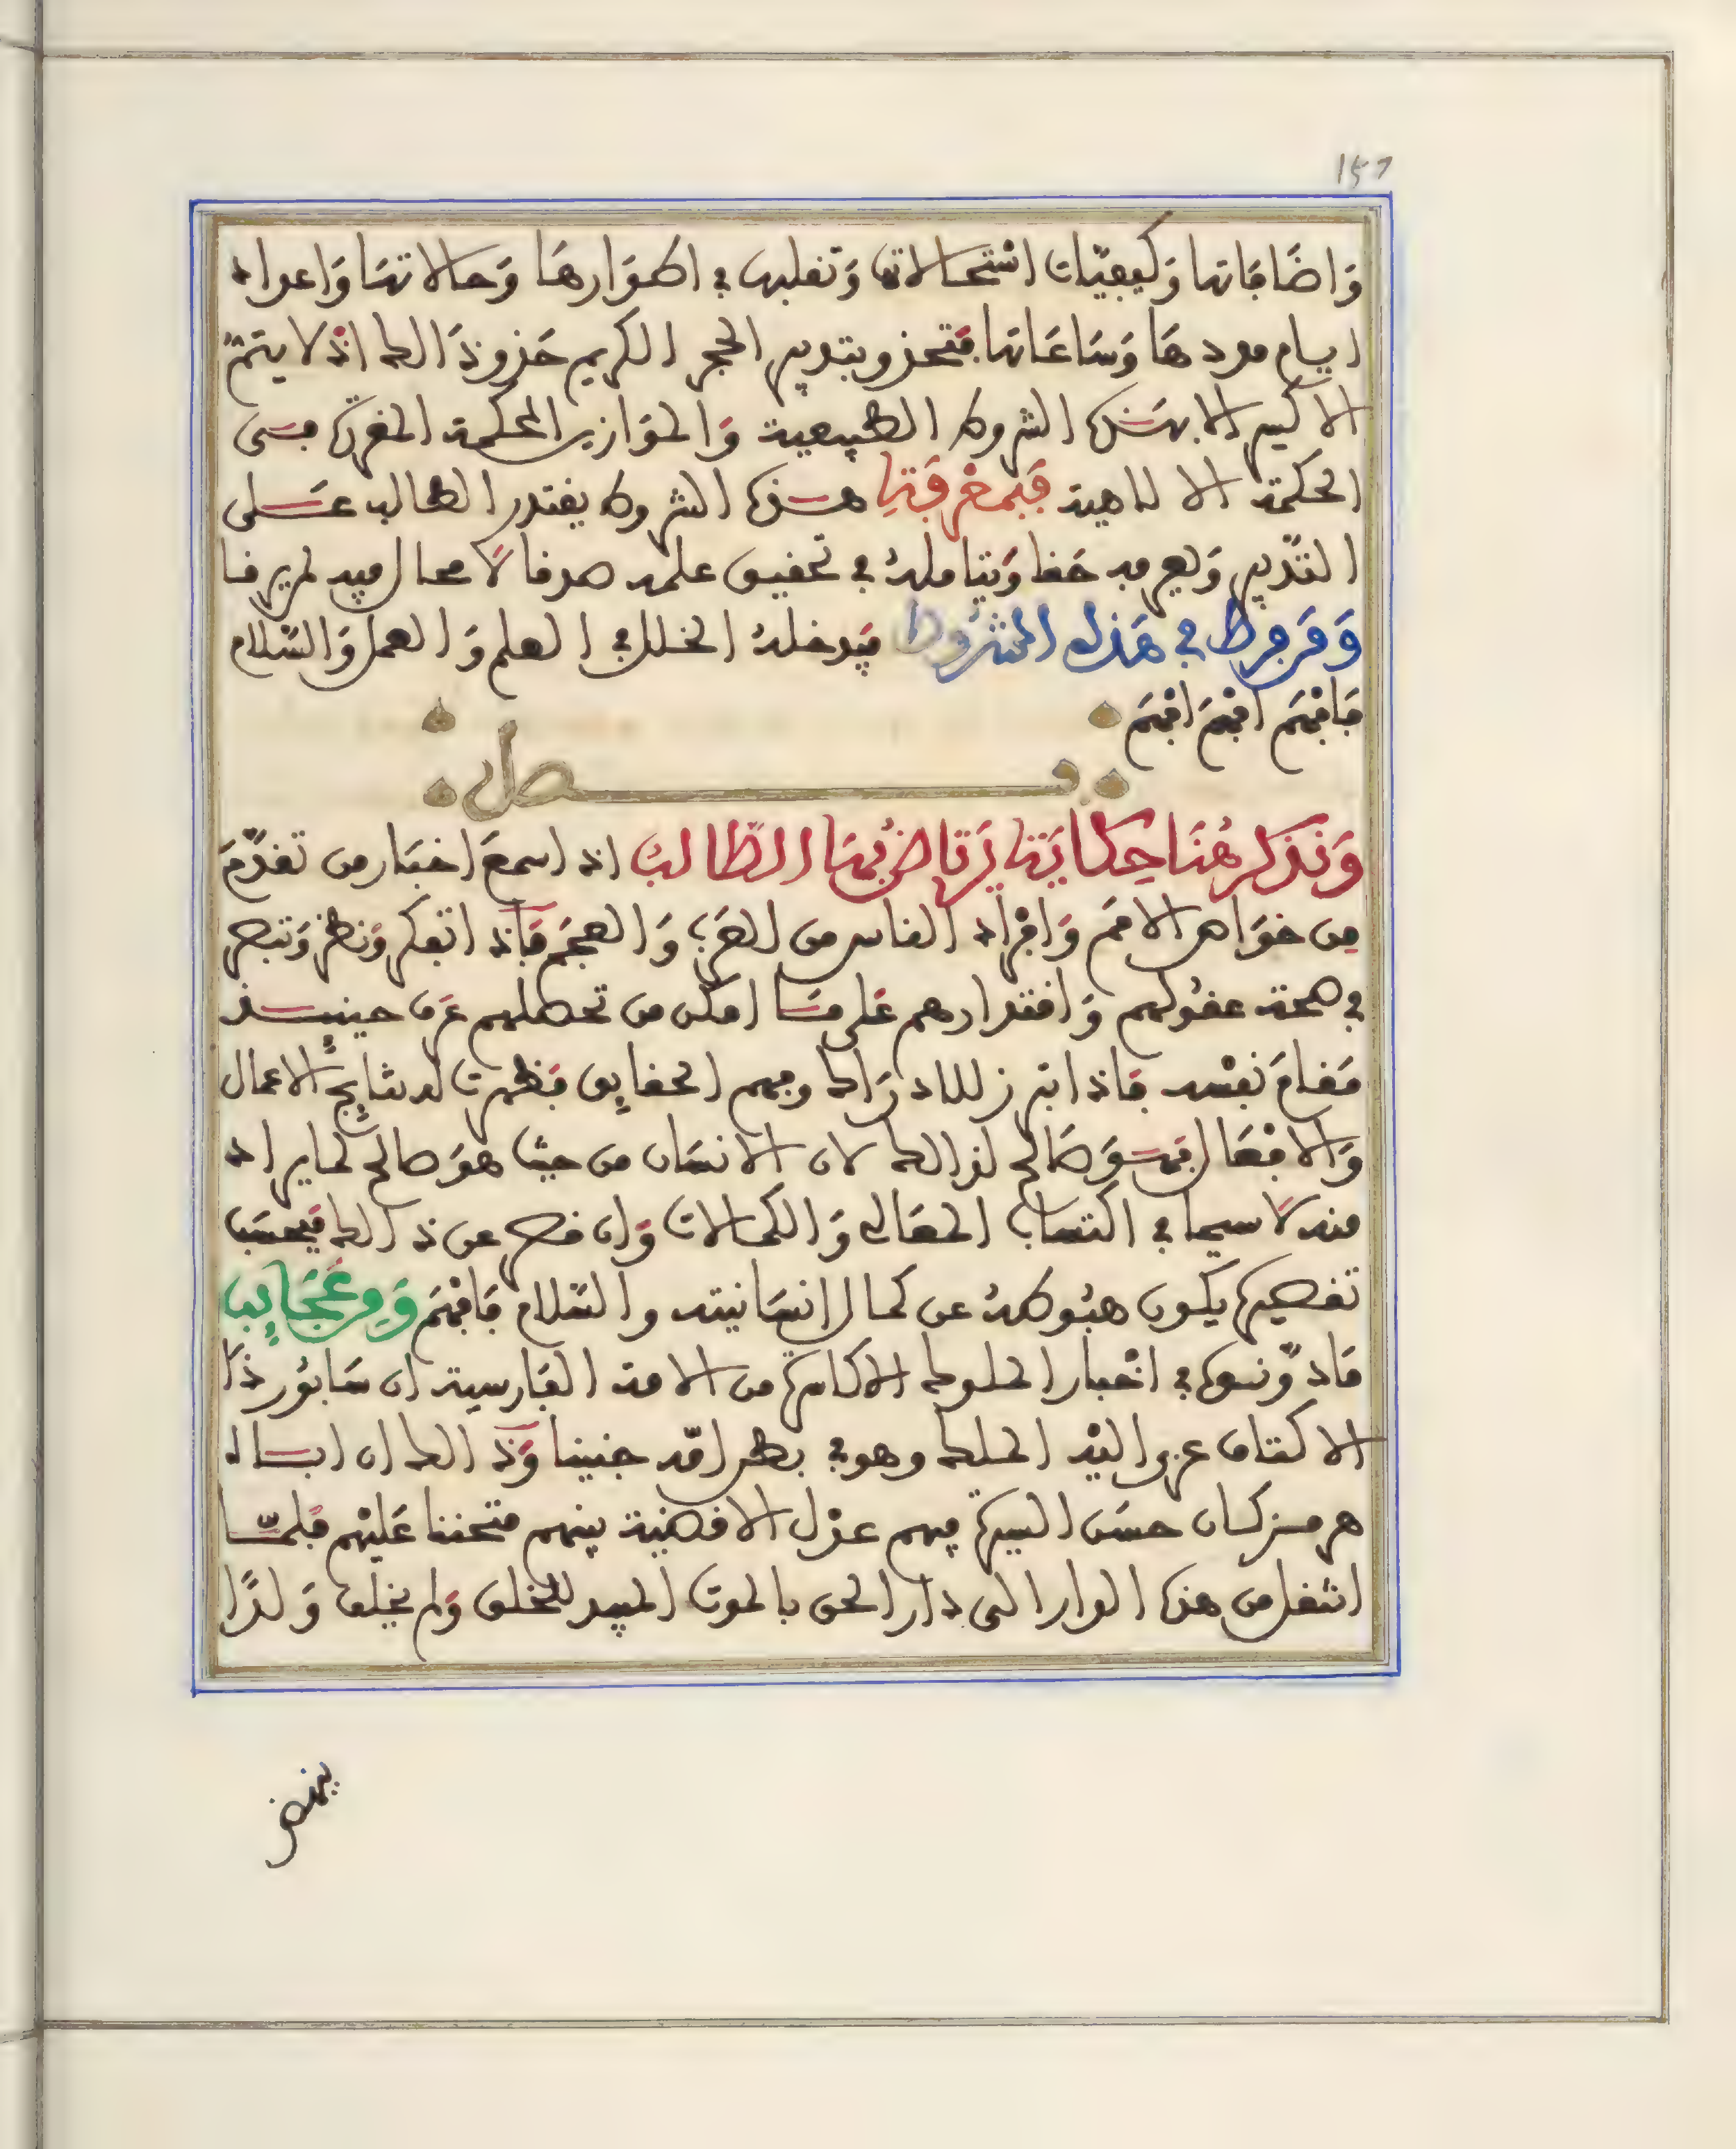 157
وَاضَافَاتها وَكيفيّات اسْتحالاتها وَتقلبها في اطوَارهَا وَحالاتهَا وَاعداد
ايام مددهَا وَسَاعَاتها فتحذو بتدبير الحجر الكريم حَذو ذَالك اذْ لا يتمّ
الاكسير الا بهَذه الشروط الطبيعية وَالموَازين المحكمة المقررة فمتى
الحكمة الالاهية فَبمعْرفَتِه هذه الشروط يقتدر الطالب عَلى
التدْبير وَيعرفه حَقا وَيتاملهُ في تحقيق علمه صدقا لا محال فيه لم يرقا
وَمَن فرط في هَذه الشرُوط فيَدخلهُ الخلل في العلم وَالعمل وَالسّلام
فَافْهَم افْهَمَ افْهَمَ
فصل
وَنذكر هُنَا حِكَايَة يَرتاضُ بهَا الطّالبُ اذ اسمعَ اخبَار من تقدّمَ
مِن خوَاص الامَم وَافْرَاد الناس من العَرَب وَالعجَم فَاذ اتفكر وَنظر وَتبصر
في صحة عقُولهم وَاقتدارهم عَلى مَا امكن من تحصلهم عَرف حينيِذ
مَقامَ نفْسه فاذ ابرز للادرَاك وفهم الحقايِق فَظهرت له نتايِج الاعمال
وَالافْعَال فهوَ صَالح لذالك لان الانسَان من حيث هوَ صالح لما يراد
منه لاَ سيما في اكتساب المعَالي وَالكمالات وَان قصر عن ذالك فبحسَب
تقصيره يكون هبُوطهُ عن كمال انسَانيته والسّلام فَافْهَم وَمِن عَجَايِب
مَا دوّنوه في اخْبار الملوك الاكاسرة من الامة الفَارسية ان سَابُور ذا
الاكتاف عزى اليْه الملك وهو في بطن امّه جنينا وَذَالك ان ابَاه
هرمز كان حسَن السيرة فيهم عدْل الاقضيَة بينهم متحننا عَليْهم فلمّا
انتقل من هذه الدار الى دار الحق بالموت المبيد للخلق وَلم يخلف وَلدًا
ينهض